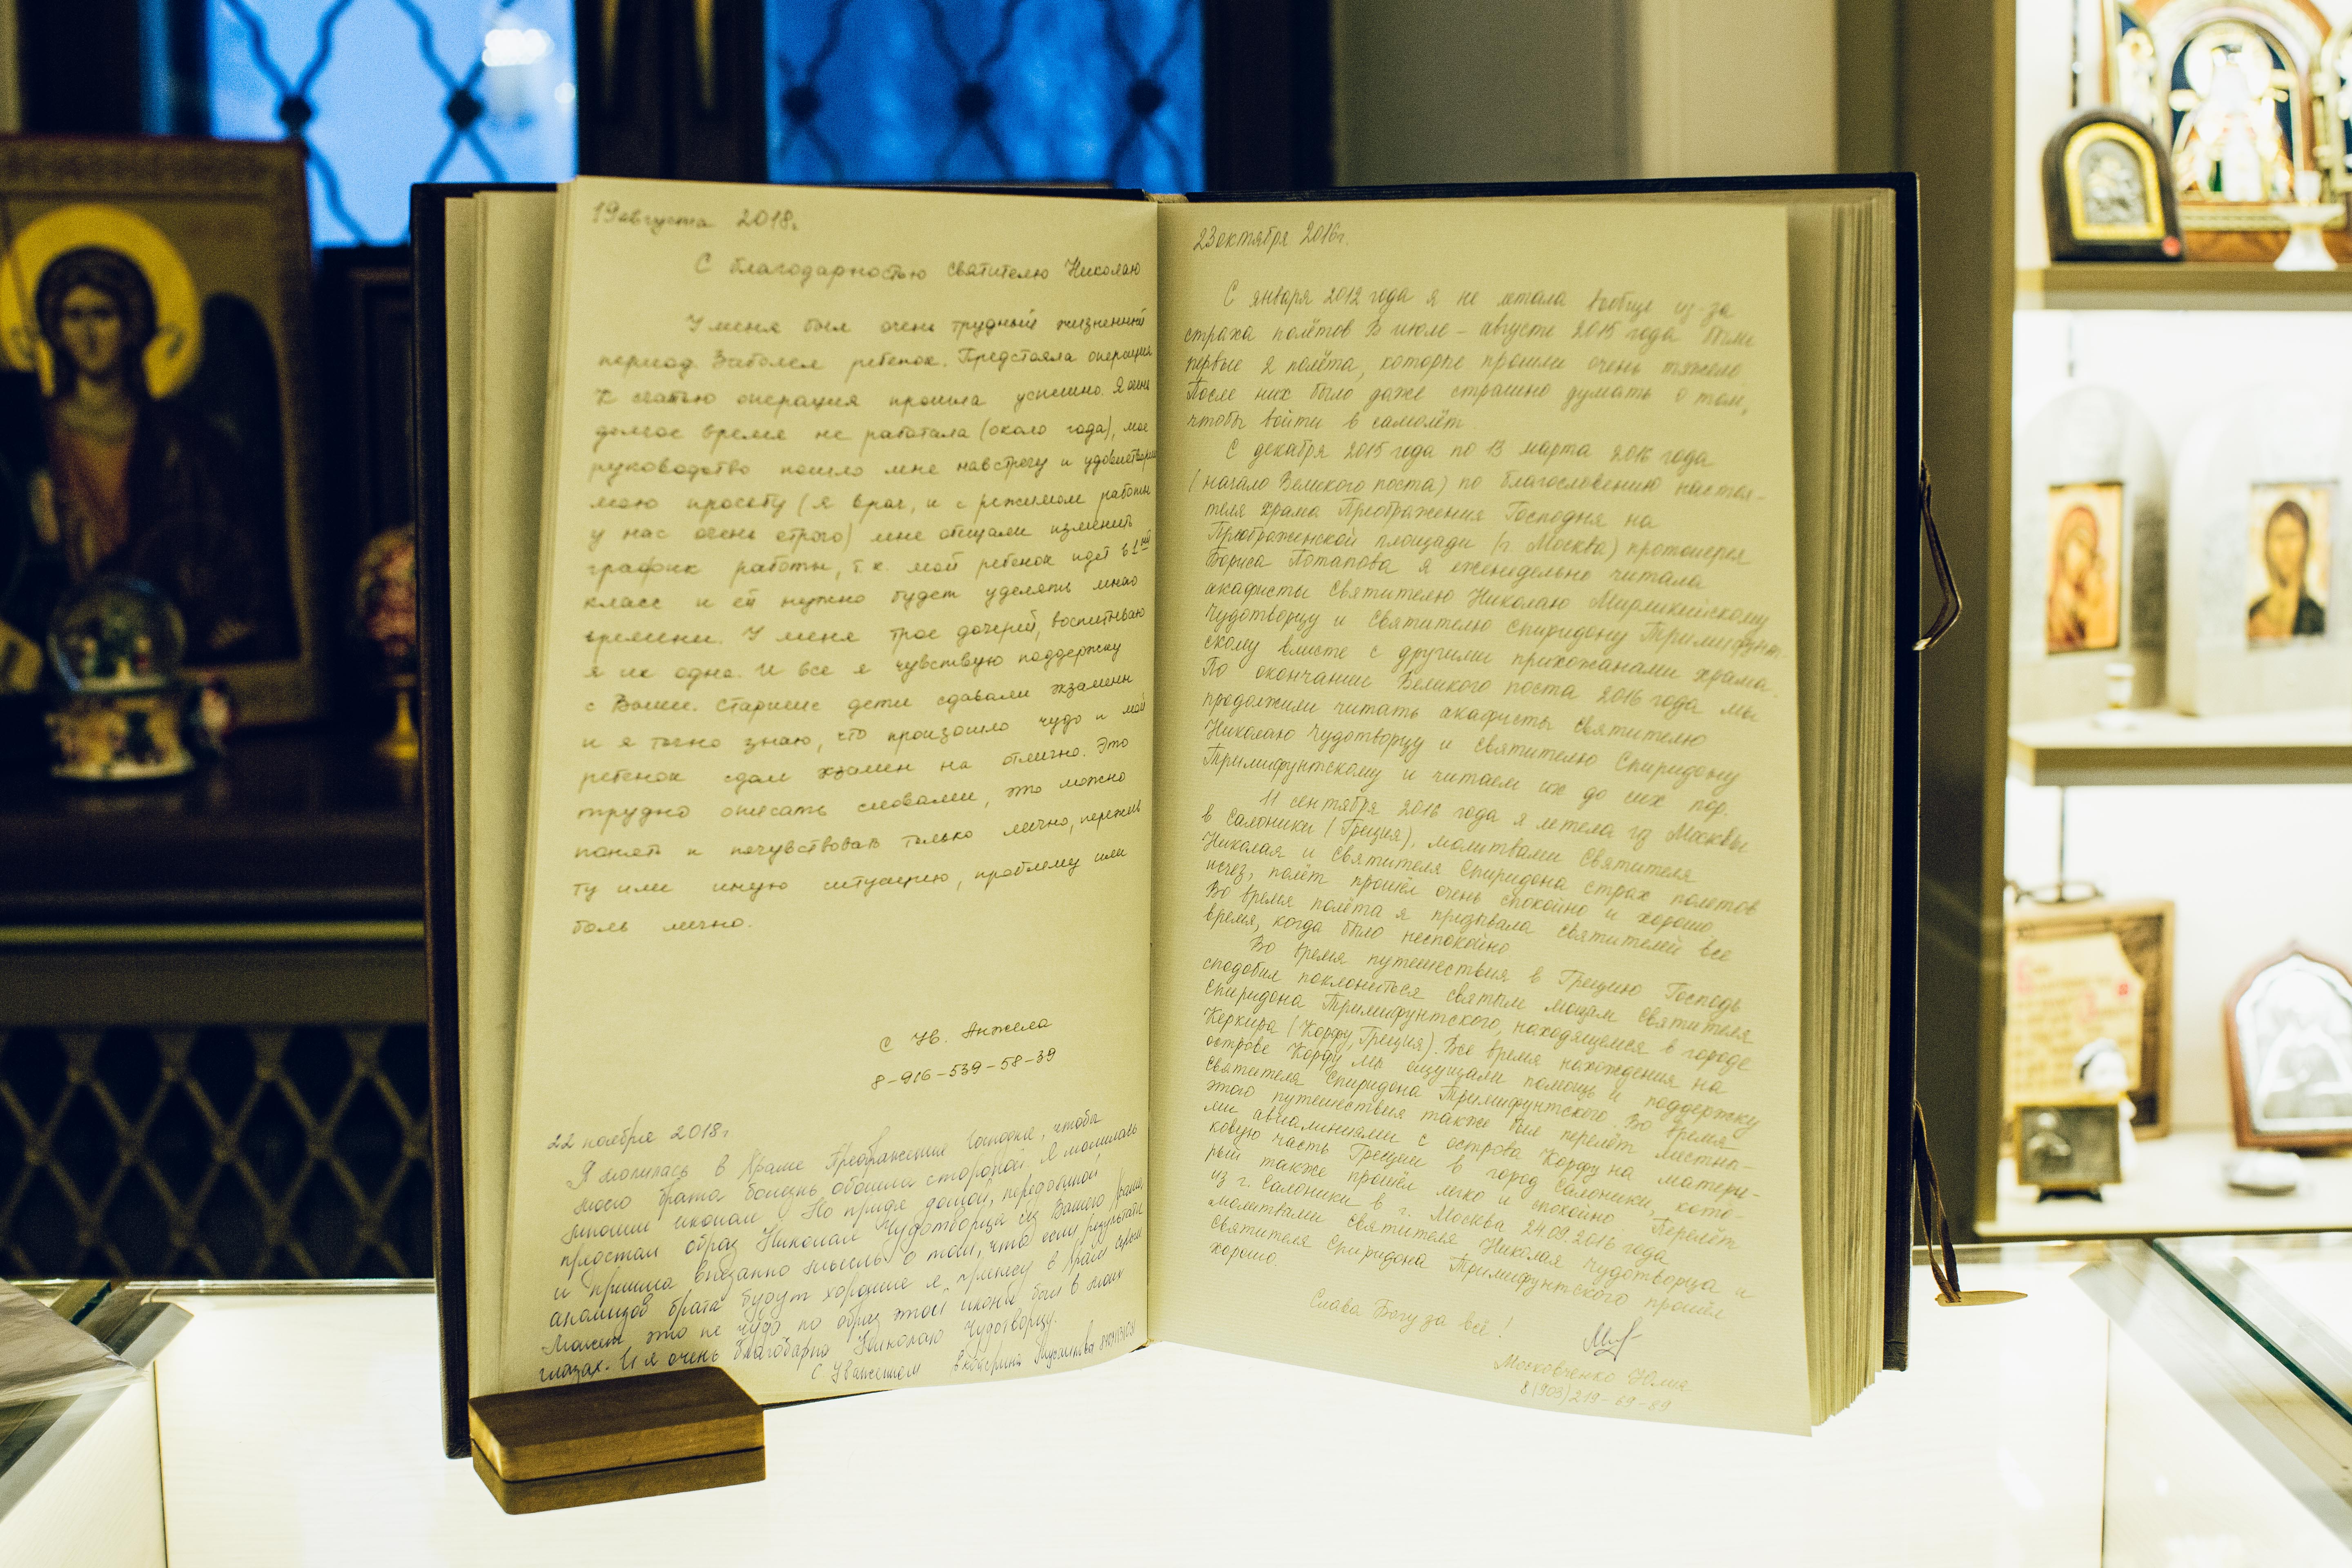 19 августа 2018г.
С благодарностью святителю Николаю
У меня был очень трудный жизненный
период. Заболел ребенок. Предстояла операция
К счастью операция прошла успешно. Я очень
долгое время не работала (около года), мое
руководство пошло мне навстречу и удовлетвори
мою просьбу (я врач, и с режимом работы
у нас очень строго) мне обещали изменить
график работы, т.к. мой ребенок идет в 1ый
класс и ей нужно будет уделять много
времени. У меня трое дочерей, воспитываю
я их одна. И все я чувствую поддержку
с Выше. Старшие дети сдавали экзамены
и я точно знаю, что произошло чудо и мой
ребенок сдал экзамен на отлично. Это
трудно описать словами, это можно
понять и почувствовать только лично, пережив
ту или иную ситуацию, проблему или
боль лично.
С Ув. Анжела
8-916-539-58-39
22 ноября 2018г
Я молилась в Храме Преображения Господня, чтобы
моего брата болезнь обошли стороной. Я молилась
многим иконам. Но придя домой, передомной
предстал образ Николая Чудотворца из Вашего Храма
и пришла внезапно мысль о том, что если результаты
анализов брата будут хорошие я принесу в Храм
Может это не чудо но образ этой иконы был в моих
глазах. И я очень благодарна Николаю Чудотворцу.
С Уважением Екатерина
23 октября 2016г.
С января 2012 года я не летала вообще из-за
страха полётов В июле - августе 2015 года были
первые 2 полёта, которые прошли очень тяжело
После них было даже страшно думать о том,
чтобы войти в самолёт.
С декабря 2015 года по 13 марта 2016 года
(начало Великого поста) по благословению настоя-
теля храма Преображения Господня на
Преображенской площади (г. Москва) протоиерея
Бориса Потапова я еженедельно читала
акафисты Святителю Николаю Мирликийскому
Чудотворцу и Святителю Спиридону Тримифунт-
скому вместе с другими прихожанами храма.
По окончании Великого поста 2016 года мы
продолжили читать акафисты Святителю
Николаю Чудотворцу и Святителю Спиридону
Тримифунтскому и читаем их до сих пор.
11 сентября 2016 года я летела из Москвы
в Салоники (Греция), молитвами Святителя
Николая и Святителя Спиридона страх полетов
исчез, полёт прошёл очень спокойно и хорошо
Во время полёта я призывала святителей все
время, когда было неспокойно
Во время путешествия в Грецию Господь
сподобил поклониться святым мощам Святителя
Спиридона Тримифунтского, находящемся в городе
Керкира (Корфу, Греция). Все время нахождения на
острове Корфу мы ощущали помощь и поддержку
Святителя Спиридона Тримифунтского. Во время
этого путешествия также был перелёт местны-
ми авиалиниями с острова Корфу на матери-
ковую часть Греции в город Салоники, кото-
рый также прошёл легко и спокойно. Перелёт
из г. Салоники в г. Москва 24.09.2016 года
молитвами Святителя Николая Чудотворца и
Святителя Спиридона Тримифунтского прошёл
хорошо.
Слава Богу за всё!
Московченко Юлия
8(903)219-69-89